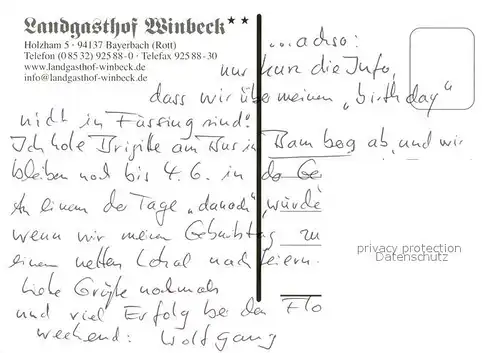 Landgasthof Winbeck**
Holzham 5 · 94137 Bayerbach (Rott)
Telefon (0 85 32) 925 88-0 · Telefax 925 88-30
www.landgasthof-winbeck.de
info@landgasthof-winbeck.de
...achso:
nur kurz die Info,
dass wir über meinen „birthday"
nicht in Füssing sind!
Ich hole Brigitte am Bus in Bamberg ab, und wir
bleiben noch bis 4.6. in
An einem der Tage „danach" würde
wenn wir meinen Geburtstag zu
einem netten Lokal nachfeiern.
Liebe Grüße nochmals
und viel Erfolg bei den Flo
wechend: Wolfgang
privacy protection
Datenschutz